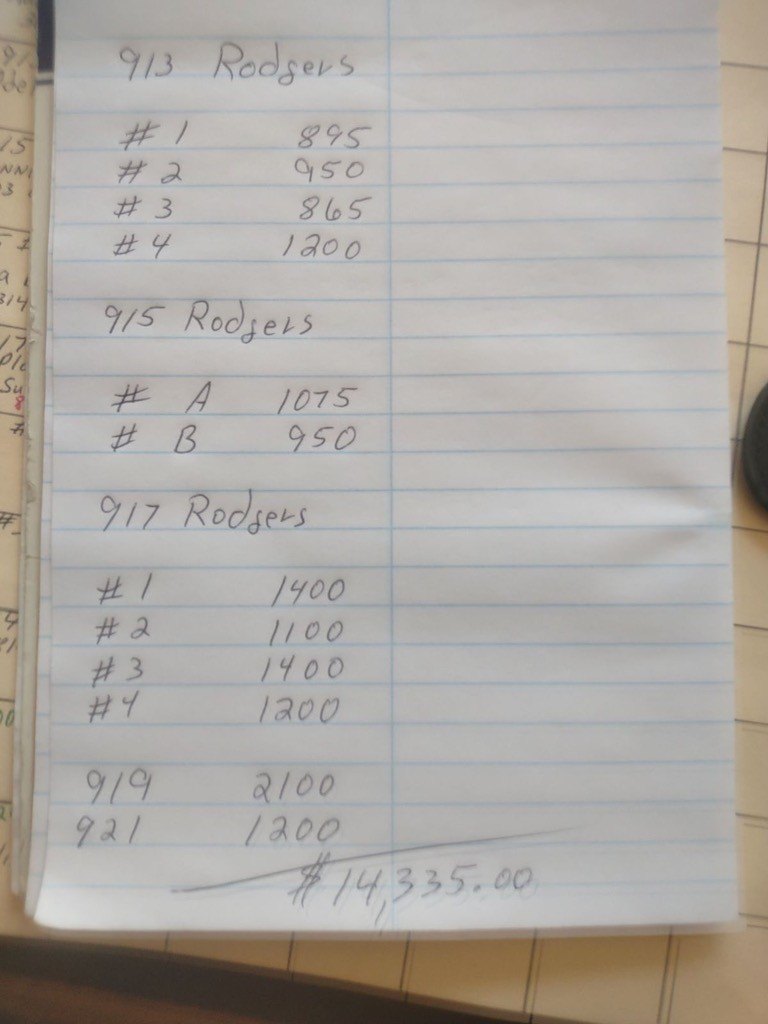 913 Rodgers
# 1 895
# 2 950
# 3 865
# 4 1200
915 Rodgers
# A 1075
# B 950
917 Rodgers
# 1 1400
# 2 1100
# 3 1400
# 4 1200
919 2100
921 1200
$14,335.00